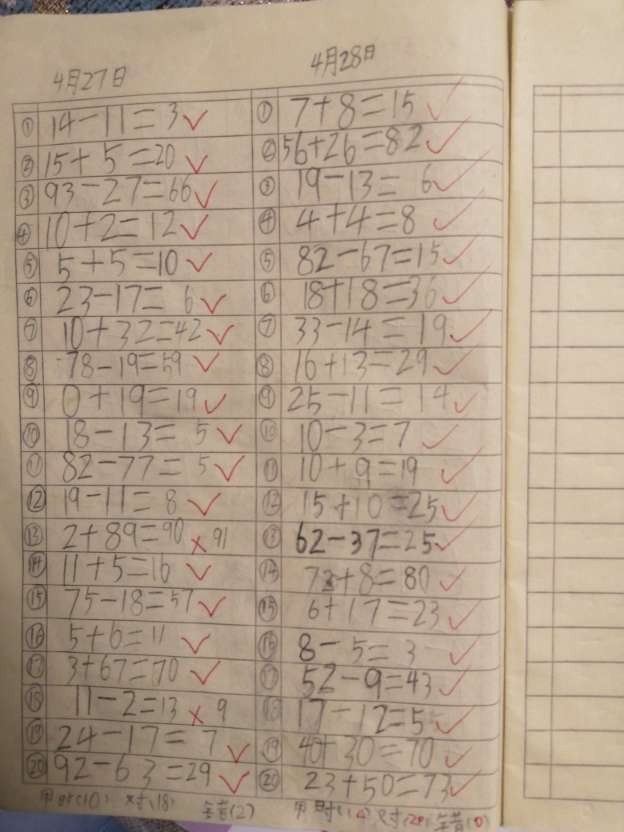 4月27日
① 14-11=3 ✓
② 15+5=20 ✓
③ 93-27=66 ✓
④ 10+2=12 ✓
⑤ 5+5=10 ✓
⑥ 23-17=6 ✓
⑦ 10+32=42 ✓
⑧ 78-19=59 ✓
⑨ 0+19=19 ✓
⑩ 18-13=5 ✓
⑪ 82-77=5 ✓
⑫ 19-11=8 ✓
⑬ 2+89=90 × 91
⑭ 11+5=16 ✓
⑮ 75-18=57 ✓
⑯ 5+6=11 ✓
⑰ 3+67=70 ✓
⑱ 11-2=13 × 9
⑲ 24-17=7 ✓
⑳ 92-63=29 ✓
用时(10) 对(18) 错(2)
4月28日
① 7+8=15 ✓
② 56+26=82 ✓
③ 19-13=6 ✓
④ 4+4=8 ✓
⑤ 82-67=15 ✓
⑥ 18+18=36 ✓
⑦ 33-14=19 ✓
⑧ 16+13=29 ✓
⑨ 25-11=14 ✓
⑩ 10-3=7 ✓
⑪ 10+9=19 ✓
⑫ 15+10=25 ✓
⑬ 62-37=25 ✓
⑭ 72+8=80 ✓
⑮ 6+17=23 ✓
⑯ 8-5=3 ✓
⑰ 52-9=43 ✓
⑱ 17-12=5 ✓
⑲ 40+30=70 ✓
⑳ 23+50=73 ✓
用时 对(20) 错(0)